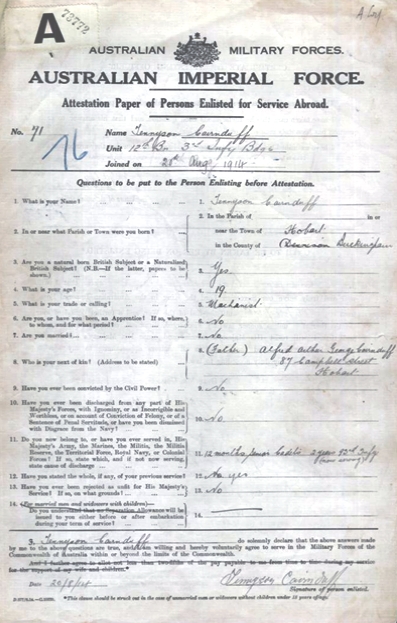 A
73772
AUSTRALIAN MILITARY FORCES.
AUSTRALIAN IMPERIAL FORCE.
Attestation Paper of Persons Enlisted for Service Abroad.
No. 71
76
Name Tennyson Cairnduff
Unit 12th Bn 3rd Infy Bdge
Joined on Aug 1914
Questions to be put to the Person Enlisting before Attestation.
1. What is your Name? 1. Tennyson Cairnduff
2. In or near what Parish or Town were you born? 2. In the Parish of in or
near the Town of Hobart
in the County of Buckingham
3. Are you a natural born British Subject or a Naturalized
British Subject? (N.B.—If the latter, papers to be
shown.) 3. Yes.
4. What is your age? 4. 19.
5. What is your trade or calling? 5. Machanist.
6. Are you, or have you been, an Apprentice? If so, where,
to whom, and for what period? 6. No
7. Are you married? 7. No.
8. Who is your next of kin? (Address to be stated) 8. (Father) Alfred Arthur George Cairnduff
87 Campbell Street
Hobart
9. Have you ever been convicted by the Civil Power? 9. No
10. Have you ever been discharged from any part of His
Majesty's Forces, with Ignominy, or as Incorrigible and
Worthless, or on account of Conviction of Felony, or of a
Sentence of Penal Servitude, or have you been dismissed
with Disgrace from the Navy? 10. No.
11. Do you now belong to, or have you ever served in, His
Majesty's Army, the Marines, the Militia, the Militia
Reserve, the Territorial Force, Royal Navy, or Colonial
Forces? If so, state which, and if not now serving,
state cause of discharge 11. 12 months Senior Cadets. 2 years Infy
12. Have you stated the whole, if any, of your previous service? 12. No yes
13. Have you ever been rejected as unfit for His Majesty's
Service? If so, on what grounds? 13. No
14. (For married men and widowers with children)—
Do you understand that no Separation Allowance will be
issued to you either before or after embarkation
during your term of service? 14.
I, Tennyson Cairnduff do solemnly declare that the above answers made
by me to the above questions are true, and I am willing and hereby voluntarily agree to serve in the Military Forces of the
Commonwealth of Australia within or beyond the limits of the Commonwealth.
And I further agree to allot not less than two-fifths of the pay payable to me from time to time during my service
for the support of my wife and children.*
Date 20/8/14 Tennyson Cairnduff
Signature of person enlisted.
*This clause should be struck out in the case of unmarried men or widowers without children under 18 years of age.